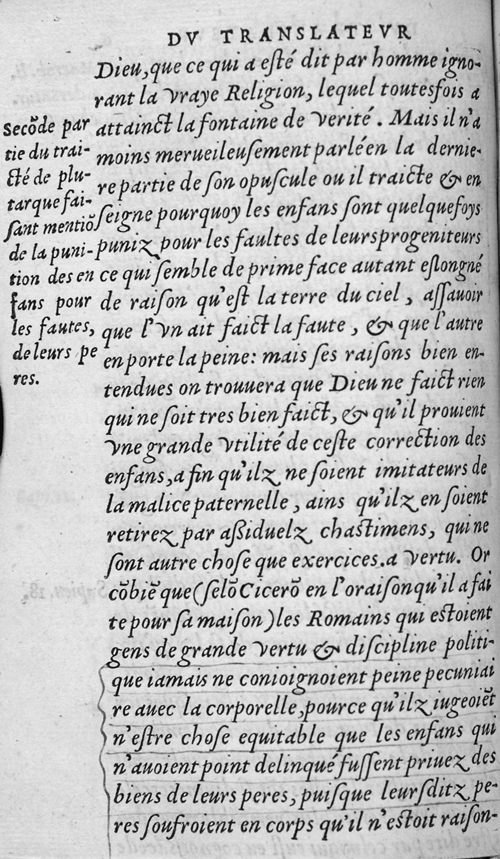 DV TRANSLATEVR
Dieu, que ce qui a esté dit par homme igno-
rant la vraye Religion, lequel toutesfois a
attainct la fontaine de verité. Mais il n'a
moins merueileusement parlé en la dernie-
re partie de son opuscule ou il traicte & en
seigne pourquoy les enfans sont quelquefoys
puniz pour les faultes de leursprogeniteurs
ce qui semble de prime face autant eslongné
de raison qu'est la terre du ciel, assauoir
que l'vn ait faict la faute, & que l'autre
en porte la peine: mais ses raisons bien en-
tendues on trouuera que Dieu ne faict rien
qui ne soit tres bien faict, & qu'il prouient
vne grande vtilité de ceste correction des
enfans, a fin qu'ilz ne soient imitateurs de
la malice paternelle, ains qu'ilz en soient
retirez par aßiduelz chastimens, qui ne
sont autre chose que exercices.a vertu. Or
cõbiẽ que (selõ Cicerõ en l'oraison qu'il a fai
te pour sa maison) les Romains qui estoient
gens de grande vertu & discipline politi-
que iamais ne conioignoient peine pecuniai
re auec la corporelle, pource qu'ilz iugeoiẽt
n'estre chose equitable que les enfans qui
n'auoient point delinqué fussent priuez des
biens de leurs peres, puisque leursditz pe-
res souffroient en corps qu'il n'estoit raison-
Secõde par
tie du trai-
cté de plu-
tarque fai-
sant mentiõ
de la puni-
tion des en
fans pour
les fautes,
de leurs pe
res.